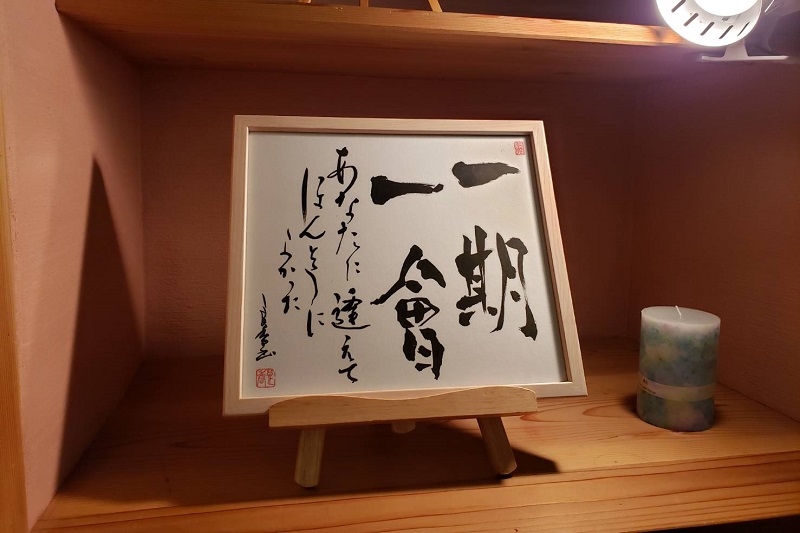 一期
一會
あなたに逢えて
ほんとうに
よかった